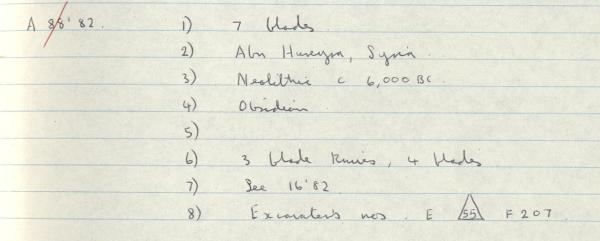 A 88'82. 1) 7 blades.
2) Abu Hureyra, Syria.
3) Neolithic c 6,000 BC.
4) Obsidian
5)
6) 3 blade knives, 4 blades
7) See 16'82
8) Excavators nos. E 55 F 207